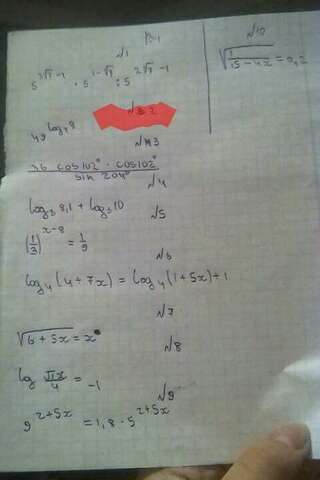 В-1
№1
5^{3√7-1} · 5^{1-√7} : 5^{2√7-1}
№2
49^{log_7 8}
№3
36 cos102° · cos102°
sin 204°
№4
log_3 8,1 + log_3 10
№5
(1/3)^{x-8} = 1/9
№6
log_4(4+7x) = log_4(1+5x)+1
№7
√6+5x = x
№8
log πx/4 = -1
№9
9^{2+5x} = 1,8 · 5^{2+5x}
№10
√(1/(15-4x)) = 0,2